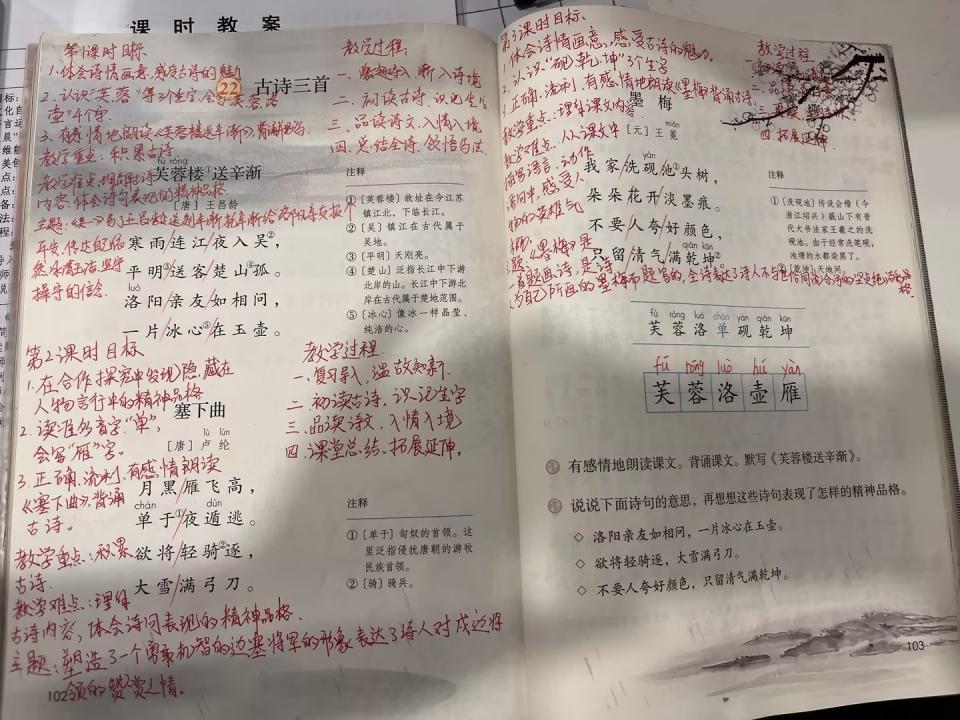 课时教案
第1课时目标
1.体会诗情画意,感受古诗的魅力
2.认识“芙蓉”等3个生字,会写“芙蓉洛
壶”4个字.
3.有感情地朗读《芙蓉楼送辛渐》,背诵
教学重点:积累古诗.
教学难点:理解古诗
内容,体会诗句表现的精神品格
教学过程:
一、入,渐入诗境
二、初读古诗,识记生字
三、品读诗文,入情入境
四、总结全诗,领悟写法
22 古诗三首
fú róng
芙蓉楼①送辛渐
[唐] 王昌龄
寒雨/连江/夜入吴②,
平明③/送客/楚山④孤。
luò
洛阳/亲友/如相问,
一片/冰心⑤/在玉壶。
注释
① [芙蓉楼] 故址在今江苏
镇江北,下临长江。
② [吴] 镇江在古代属于
吴地。
③ [平明] 天刚亮。
④ [楚山] 泛指长江中下游
北岸的山。长江中下游北
岸在古代属于楚地范围。
⑤ [冰心] 像冰一样晶莹、
纯洁的心。
第2课时目标
1.在合作探究中发现隐藏在
人物言行中的精神品格
2.读准多音字“单”,
会写“雁”字。
3.正确、流利、有感情朗读
《塞下曲》,背诵
古诗。
教学重点:积累
古诗.
教学难点:理解
古诗内容,体会诗句表现的精神品格.
主题:塑造了一个勇敢机智的边塞将军的形象,表达了诗人对戍边将
领的赞赏之情。
教学过程
一.复习导入,温故知新.
二.初读古诗,识记生字
三.品读诗文,入情入境
四.课堂总结,拓展延伸.
塞下曲
lú lún
[唐] 卢纶
月黑/雁飞高,
chán dùn
单于①/夜遁逃。
欲将/轻骑②逐,
大雪/满弓刀。
注释
① [单于] 匈奴的首领。这
里泛指侵扰唐朝的游牧
民族首领。
② [骑] 骑兵。
102
第3课时目标
1.体会诗情画意,感受古诗的魅力.
2.认识“砚乾坤”3个生字
3.正确、流利、有感情地朗读《墨梅》背诵古诗.
教学重点:理解课文内容
教学难点:从课文中
教学过程
四.拓展延伸.
墨梅
miǎn
[元] 王冕
yàn
我家/洗砚池①头树,
朵朵/花开/淡墨痕。
不要/人夸/好颜色,
qián kūn
只留/清气/满乾坤②。
注释
① [洗砚池] 传说会稽(今
浙江绍兴)蕺山下有晋
代大书法家王羲之的洗
砚池。由于经常洗笔砚,
池塘的水都染黑了。
② [乾坤] 天地间。
fú róng luò chán yàn qián kūn
芙 蓉 洛 单 砚 乾 坤
fú róng luò hú yàn
芙 蓉 洛 壶 雁
有感情地朗读课文。背诵课文。默写《芙蓉楼送辛渐》。
说说下面诗句的意思,再想想这些诗句表现了怎样的精神品格。
◇ 洛阳亲友如相问,一片冰心在玉壶。
◇ 欲将轻骑逐,大雪满弓刀。
◇ 不要人夸好颜色,只留清气满乾坤。
103